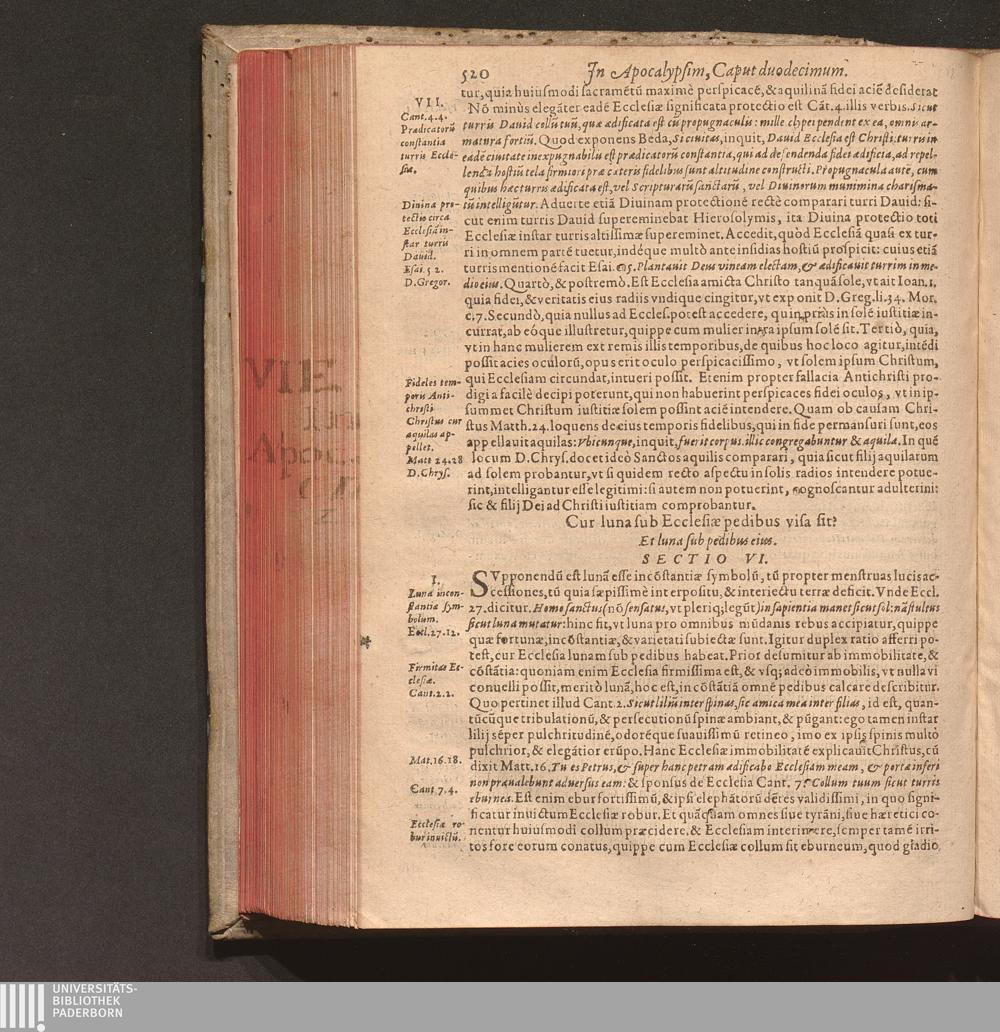 520 In Apocalypsim, Caput duodecimum.
tur, quia huiusmodi sacramētū maximè perspicacē, & aquilinā fidei aciē desiderat
VII.
Cant. 4.4.
Prædicatorū
constantia
turris Eccle-
siæ.
Nō minùs elegāter eadē Ecclesiæ significata protectio est Cāt. 4. illis verbis. Sicut
turris Dauid collū tuū, quæ ædificata est cū propugnaculis: mille clypei pendent ex ea, omnis ar-
matura fortiū. Quod exponens Beda, Si ciuitas, inquit, Dauid Ecclesia est Christi, turris in
eadē ciuitate inexpugnabilis est prædicatorū constantia, qui ad defendenda fidei ædificia, ad repel-
lenda hostiū tela firmiori præ cæteris fidelibus sunt altitudine constructi. Propugnacula autē, cum
quibus hæc turris ædificata est, vel Scripturarū sanctarū, vel Diuinorum munimina charisma-
Diuina pro-
tectio circa
Ecclesiā in-
star turris
Dauid.
Esai. 5 2.
D. Gregor.
tū intelligūtur. Aduerte etiā Diuinam protectionē rectè comparari turri Dauid: si-
cut enim turris Dauid supereminebat Hierosolymis, ita Diuina protectio toti
Ecclesiæ instar turris altissimæ supereminet. Accedit, quòd Ecclesiā quasi ex tur-
ri in omnem partē tuetur, indéque multò ante insidias hostiū prospicit: cuius etiā
turris mentionē facit Esai. c. 5. Plantauit Deus vineam electam, & ædificauit turrim in me-
dio eius. Quartò, & postremò. Est Ecclesia amicta Christo tanquā sole, vt ait Ioan. 1.
quia fidei, & veritatis eius radiis vndique cingitur, vt exponit D. Greg. li. 34. Mor.
c. 7. Secundò, quia nullus ad Eccles. potest accedere, quin priùs in solē iustitiæ in-
currat, ab eóque illustretur, quippe cum mulier intra ipsum solē sit. Tertiò, quia,
vt in hanc mulierem extremis illis temporibus, de quibus hoc loco agitur, intēdi
possit acies oculorū, opus erit oculo perspicacissimo, vt solem ipsum Christum,
Fideles tem-
poris Anti-
christi
Christus cur
aquilas ap-
pellet.
Matt 24.28
D. Chrys.
qui Ecclesiam circundat, intueri possit. Etenim propter fallacia Antichristi pro-
digia facilè decipi poterunt, qui non habuerint perspicaces fidei oculos, vt in ip-
summet Christum iustitiæ solem possint aciē intendere. Quam ob causam Chri-
stus Matth. 24. loquens de eius temporis fidelibus, qui in fide permansuri sunt, eos
appellauit aquilas: Vbicunque, inquit, fuerit corpus. illic congregabuntur & aquilæ. In quē
locum D. Chrys. docet ideò Sanctos aquilis comparari, quia sicut filij aquilarum
ad solem probantur, vt si quidem recto aspectu in solis radios intendere potue-
rint, intelligantur esse legitimi: si autem non potuerint, cognoscantur adulterini:
sic & filij Dei ad Christi iustitiam comprobantur.
Cur luna sub Ecclesiæ pedibus visa sit?
Et luna sub pedibus eius.
SECTIO VI.
I.
Luna incon-
stantia sym-
bolum.
Eccl. 27.12.
SVpponendū est lunā esse incōstantiæ symbolū, tū propter menstruas lucis ac-
cessiones, tū quia sæpissimè interpositu, & interiectu terræ deficit. Vnde Eccl.
27. dicitur. Homo sanctus (nō sensatus, vt pleriq; legūt) in sapientia manet sicut sol: nā stultus
sicut luna mutatur: hinc fit, vt luna pro omnibus mūdanis rebus accipiatur, quippe
quæ fortunæ, incōstantiæ, & varietati subiectæ sunt. Igitur duplex ratio afferri po-
test, cur Ecclesia lunam sub pedibus habeat. Prior desumitur ab immobilitate, &
Firmitas Ec-
clesiæ.
Cant. 2.2.
cōstātia: quoniam enim Ecclesia firmissima est, & vsq; adeò immobilis, vt nulla vi
conuelli possit, meritò lunā, hoc est, incōstātiā omnē pedibus calcare describitur.
Quo pertinet illud Cant. 2. Sicut liliū inter spinas, sic amica mea inter filias, id est, quan-
tūcūque tribulationū, & persecutionū spinæ ambiant, & pūgant: ego tamen instar
lilij sēper pulchritudinē, odoréque suauissimū retineo, imo ex ipsis spinis multò
pulchrior, & elegātior erūpo. Hanc Ecclesiæ immobilitatē explicauit Christus, cū
Mat. 16.18.
dixit Matt. 16. Tu es Petrus, & super hanc petram ædificabo Ecclesiam meam, & portæ inferi
non præualebunt aduersus eam: & sponsus de Ecclesia Cant. 7. Collum tuum sicut turris
Cant 7.4.
eburnea. Est enim ebur fortissimū, & ipsi elephātorū dētes validissimi, in quo signi-
ficatur inuictum Ecclesiæ robur. Et quāquam omnes siue tyrāni, siue hæretici co-
Ecclesiæ ro-
bur inuictū.
nentur huiusmodi collum præcidere, & Ecclesiam interimere, semper tamē irri-
tos fore eorum conatus, quippe cum Ecclesiæ collum sit eburneum, quod gladio
UNIVERSITÄTS-
BIBLIOTHEK
PADERBORN